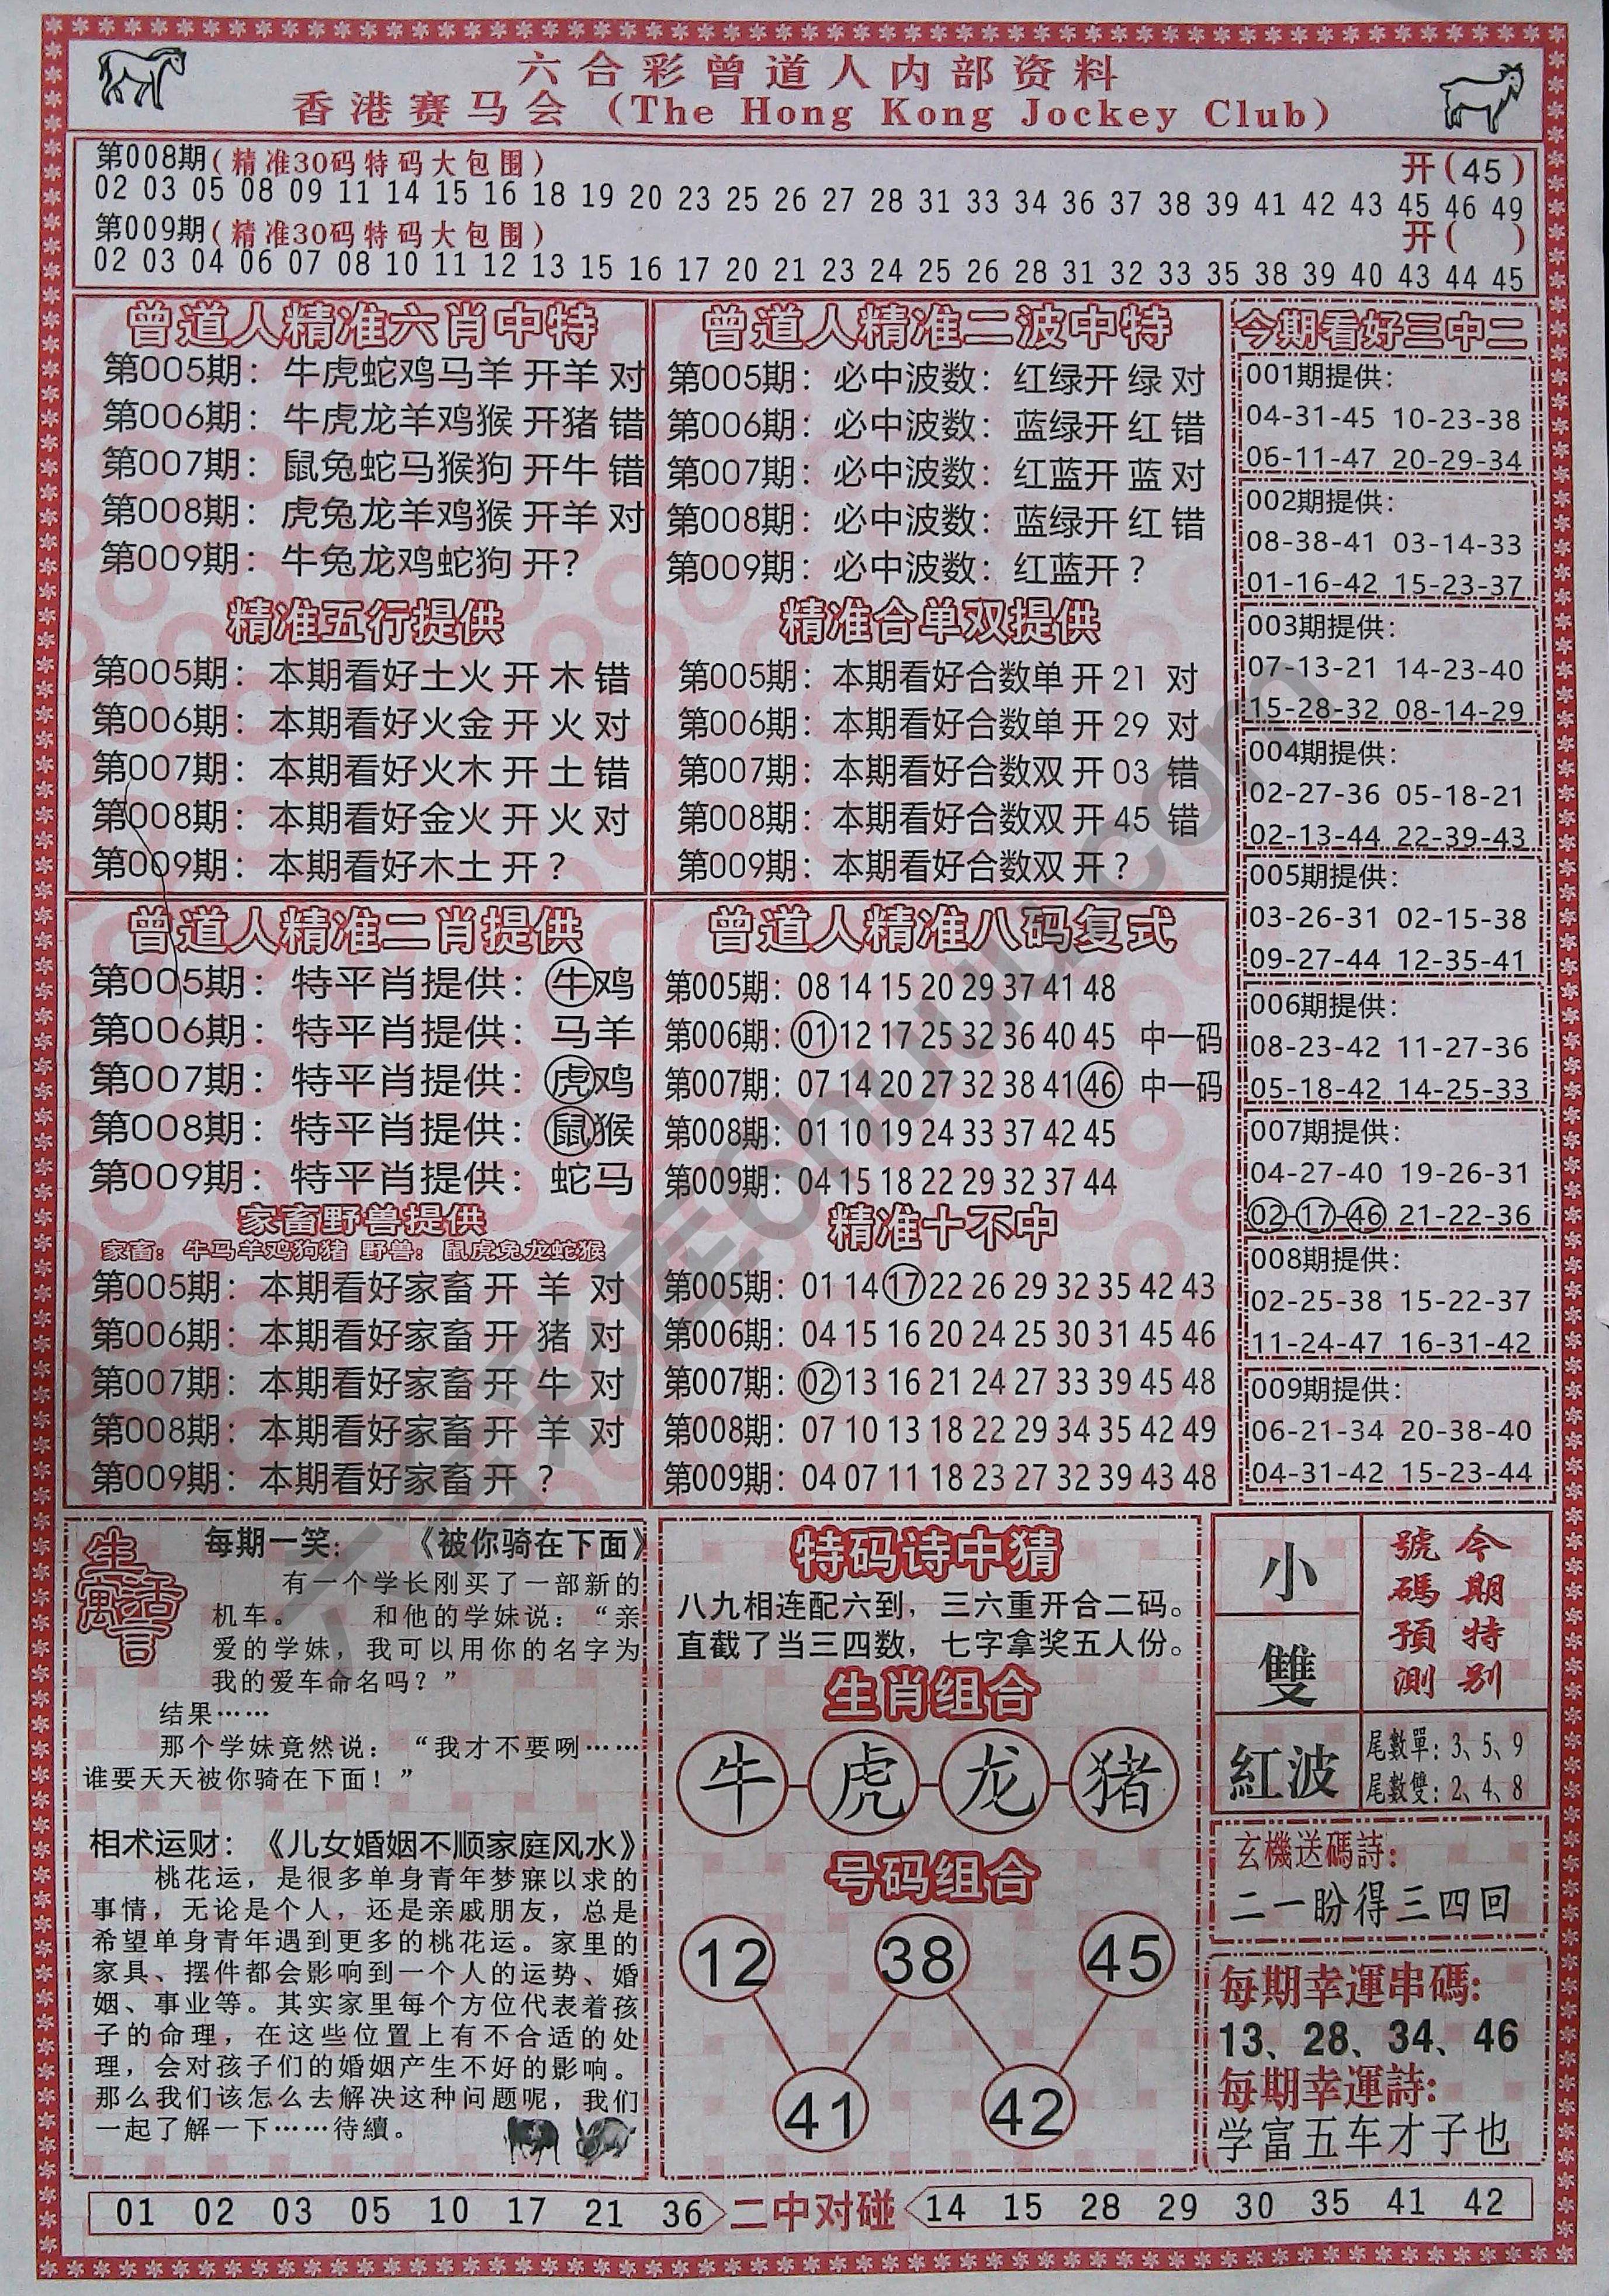 六合彩曾道人内部资料
香港赛马会（The Hong Kong Jockey Club）
第008期(精准30码特码大包围) 开(45)
02 03 05 08 09 11 14 15 16 18 19 20 23 25 26 27 28 31 33 34 36 37 38 39 41 42 43 45 46 49
第009期(精准30码特码大包围) 开( )
02 03 04 06 07 08 10 11 12 13 15 16 17 20 21 23 24 25 26 28 31 32 33 35 38 39 40 43 44 45
曾道人精准六肖中特
第005期：牛虎蛇鸡马羊 开羊 对
第006期：牛虎龙羊鸡猴 开猪 错
第007期：鼠兔蛇马猴狗 开牛 错
第008期：虎兔龙羊鸡猴 开羊 对
第009期：牛兔龙鸡蛇狗 开？
精准五行提供
第005期：本期看好土火 开 木 错
第006期：本期看好火金 开 火 对
第007期：本期看好火木 开 土 错
第008期：本期看好金火 开 火 对
第009期：本期看好木土 开？
曾道人精准二波中特
第005期：必中波数：红绿开 绿 对
第006期：必中波数：蓝绿开 红 错
第007期：必中波数：红蓝开 蓝 对
第008期：必中波数：蓝绿开 红 错
第009期：必中波数：红蓝开？
精准合单双提供
第005期：本期看好合数单 开 21 对
第006期：本期看好合数单 开 29 对
第007期：本期看好合数双 开 03 错
第008期：本期看好合数双 开 45 错
第009期：本期看好合数双 开？
今期看好三中二
001期提供：
04-31-45 10-23-38
06-11-47 20-29-34
002期提供：
08-38-41 03-14-33
01-16-42 15-23-37
003期提供：
07-13-21 14-23-40
15-28-32 08-14-29
004期提供：
02-27-36 05-18-21
02-13-44 22-39-43
005期提供：
03-26-31 02-15-38
09-27-44 12-35-41
006期提供：
08-23-42 11-27-36
05-18-42 14-25-33
007期提供：
04-27-40 19-26-31
02-17-46 21-22-36
008期提供：
02-25-38 15-22-37
11-24-47 16-31-42
009期提供：
06-21-34 20-38-40
04-31-42 15-23-44
曾道人精准二肖提供
第005期：特平肖提供：牛鸡
第006期：特平肖提供：马羊
第007期：特平肖提供：虎鸡
第008期：特平肖提供：鼠猴
第009期：特平肖提供：蛇马
家畜野兽提供
家畜：牛马羊鸡狗猪 野兽：鼠虎兔龙蛇猴
第005期：本期看好家畜 开 羊 对
第006期：本期看好家畜 开 猪 对
第007期：本期看好家畜 开 牛 对
第008期：本期看好家畜 开 羊 对
第009期：本期看好家畜 开 ？
曾道人精准八码复式
第005期：08 14 15 20 29 37 41 48
第006期：01 12 17 25 32 36 40 45 中一码
第007期：07 14 20 27 32 38 41 46 中一码
第008期：01 10 19 24 33 37 42 45
第009期：04 15 18 22 29 32 37 44
精准十不中
第005期：01 14 17 22 26 29 32 35 42 43
第006期：04 15 16 20 24 25 30 31 45 46
第007期：02 13 16 21 24 27 33 39 45 48
第008期：07 10 13 18 22 29 34 35 42 49
第009期：04 07 11 18 23 27 32 39 43 48
生活寓言
每期一笑：《被你骑在下面》
有一个学长刚买了一部新的
机车。 和他的学妹说：“亲
爱的学妹，我可以用你的名字为
我的爱车命名吗？”
结果……
那个学妹竟然说：“我才不要咧……
谁要天天被你骑在下面！”
相术运财：《儿女婚姻不顺家庭风水》
桃花运，是很多单身青年梦寐以求的
事情，无论是个人，还是亲戚朋友，总是
希望单身青年遇到更多的桃花运。家里的
家具、摆件都会影响到一个人的运势、婚
姻、事业等。其实家里每个方位代表着孩
子的命理，在这些位置上有不合适的处
理，会对孩子们的婚姻产生不好的影响。
那么我们该怎么去解决这种问题呢，我们
一起了解一下……待續。
特码诗中猜
八九相连配六到，三六重开合二码。
直截了当三四数，七字拿奖五人份。
生肖组合
牛 虎 龙 猪
号码组合
12 38 45
41 42
今期特别
號碼預測
小
雙
紅波
尾數單：3、5、9
尾數雙：2、4、8
玄機送碼詩：
二一盼得三四回
每期幸運串碼：
13、28、34、46
每期幸運詩：
学富五车才子也
01 02 03 05 10 17 21 36 二中对碰 14 15 28 29 30 35 41 42